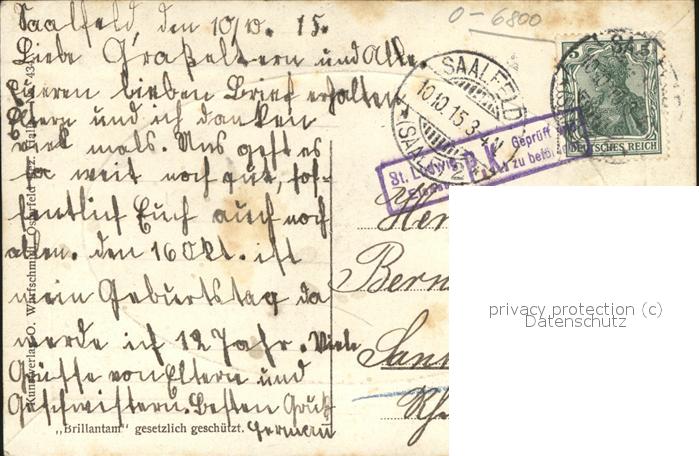 Saalfeld, den 10/10. 15.
Liebe Großeltern und Alle.
Eueren lieben Brief erhalten
Eltern und ich danken
viel mals. Uns geht es
so weit noch gut, hof-
fentlich Euch auch noch
allen. den 16 Okt. ist
mein Geburtstag da
werde ich 12 Jahr. Viele
Grüße von Eltern und
Geschwistern. Besten Gruß
Herman
„Brillantam" gesetzlich geschützt.
Kunstverlag O. Wurfschmidt, Osterfeld
0-6800
SAALFELD
10.10.15.3-4 N
(SAALE)
St. Ludwig
P.K.
Geprüft
zu beför
5
DEUTSCHES REICH
Her
Bern
San
Rh
privacy protection (c)
Datenschutz